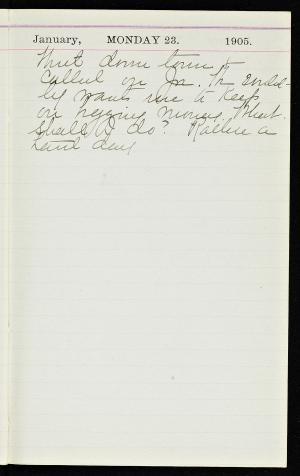 January, MONDAY 23. 1905.
Went down town &
called on Jn. He
by wants me to keep
on money. What
shall I do? Rather a
hard day